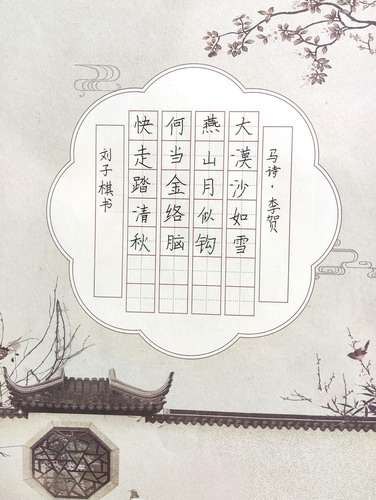 马诗·李贺
大漠沙如雪
燕山月似钩
何当金络脑
快走踏清秋
刘子棋书